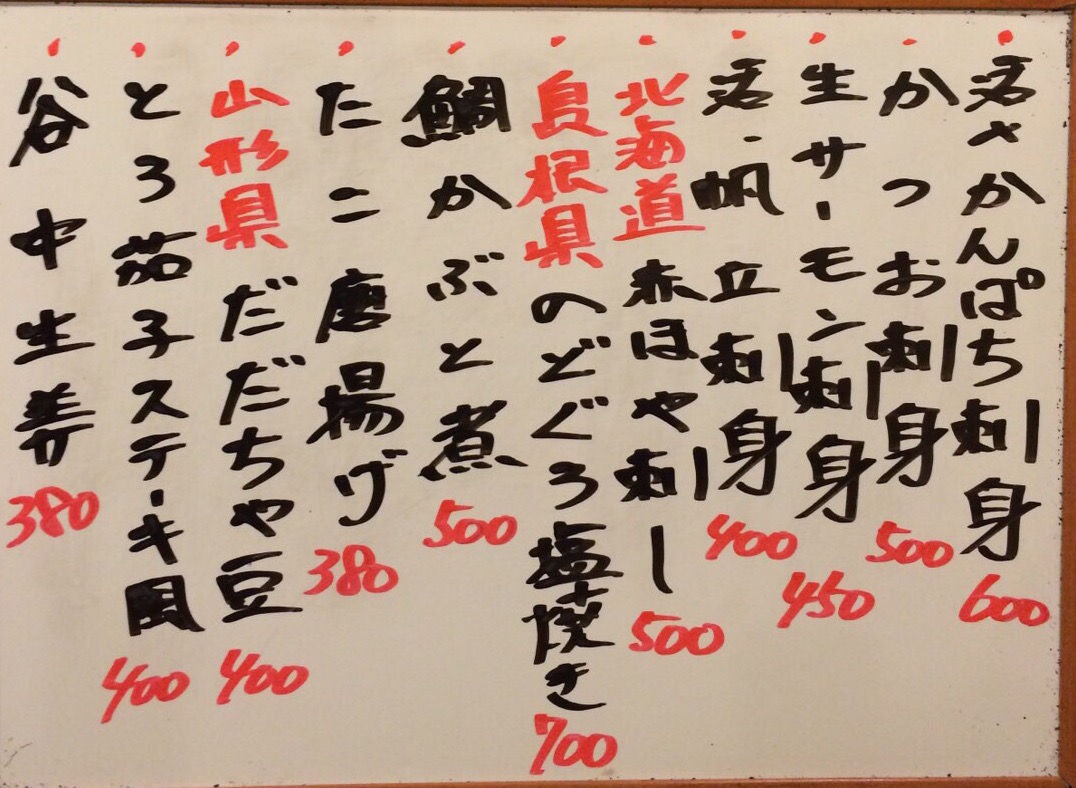 ・活〆かんぱち刺身 600
・かつお刺身 500
・生サーモン刺身 450
・活・帆立刺身 400
・北海道 赤ほや刺し 500
・島根県のどぐろ塩焼き 700
・鯛かぶと煮 500
・たこ唐揚げ 380
・山形県だだちゃ豆 400
・とろ茄子ステーキ風 400
・谷中生姜 380